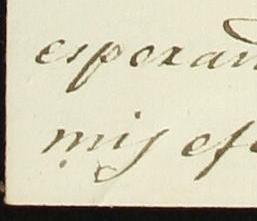 esperan
mis ef